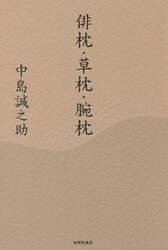 俳枕・草枕・腕枕
中島誠之助